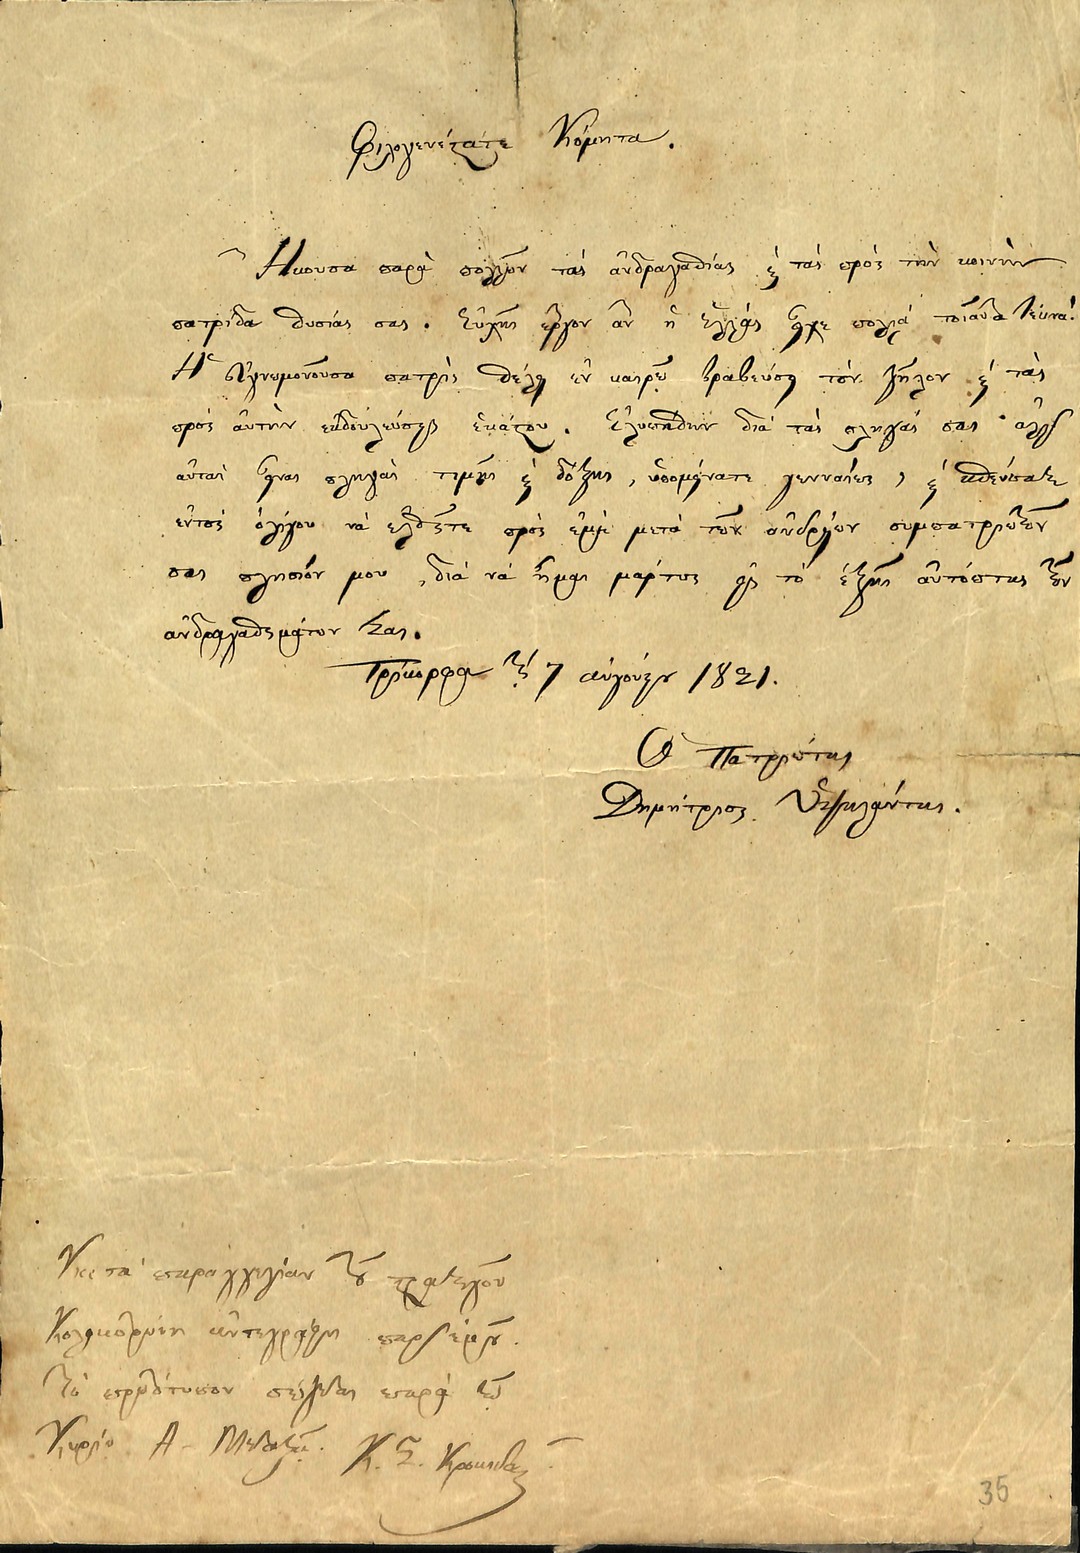 Φιλογενέστατε Κόμητα.
Ἤκουσα παρὰ πολλῶν τὰς ἀνδραγαθίας καὶ τὰς πρὸς τὴν κοινὴν
πατρίδα θυσίας σας. Εὐχῆς ἔργον ἂν ἡ Ἑλλὰς εἶχε πολλὰ τοιαῦτα τέκνα!
Ἡ εὐγνωμονοῦσα πατρὶς θέλει ἐν καιρῷ βραβεύσῃ τὸν ζῆλον καὶ τὰς
πρὸς αὐτὴν ἐκδουλεύσεις ἑκάστου. Ἐλυπήθην διὰ τὰς πληγάς σας· ἀλλ'
αὐταὶ εἶναι πληγαὶ τιμῆς καὶ δόξης, ὑπομείνατε γενναίως, καὶ
ἐντὸς ὀλίγου νὰ ἔλθετε πρὸς ἐμὲ μετὰ τῶν ἀνδρείων συμπατριωτῶν
σας πλησίον μου, διὰ νὰ ἦμαι μάρτυς εἰς τὸ ἑξῆς αὐτόπτης τῶν
ἀνδραγαθημάτων σας.
Τρίκορφα τῇ 7 αὐγούστου 1821.
Ὁ Πατριώτης
Δημήτριος Ὑψηλάντης.
Κατὰ παραγγελίαν τοῦ στρατηγοῦ
Κολοκοτρώνη ἀντεγράφη παρ' ἐμοῦ.
Τὸ πρωτότυπον σώζεται παρὰ τῷ
Κυρίῳ Α. Μεταξᾷ. Κ. Σ.
35